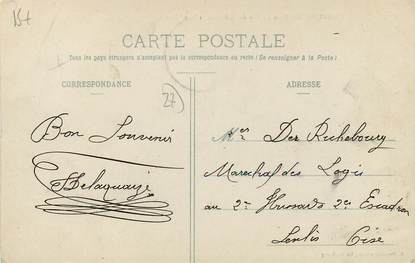 15+
CARTE POSTALE
Tous les pays étrangers n'acceptent pas la correspondance au recto (Se renseigner à la Poste)
CORRESPONDANCE
ADRESSE
27
Bon Souvenir
Delaquaize
Mer Des Richebourg
Marechal des Logis
au 2e Hussards 2e Escadron
Senlis Oise